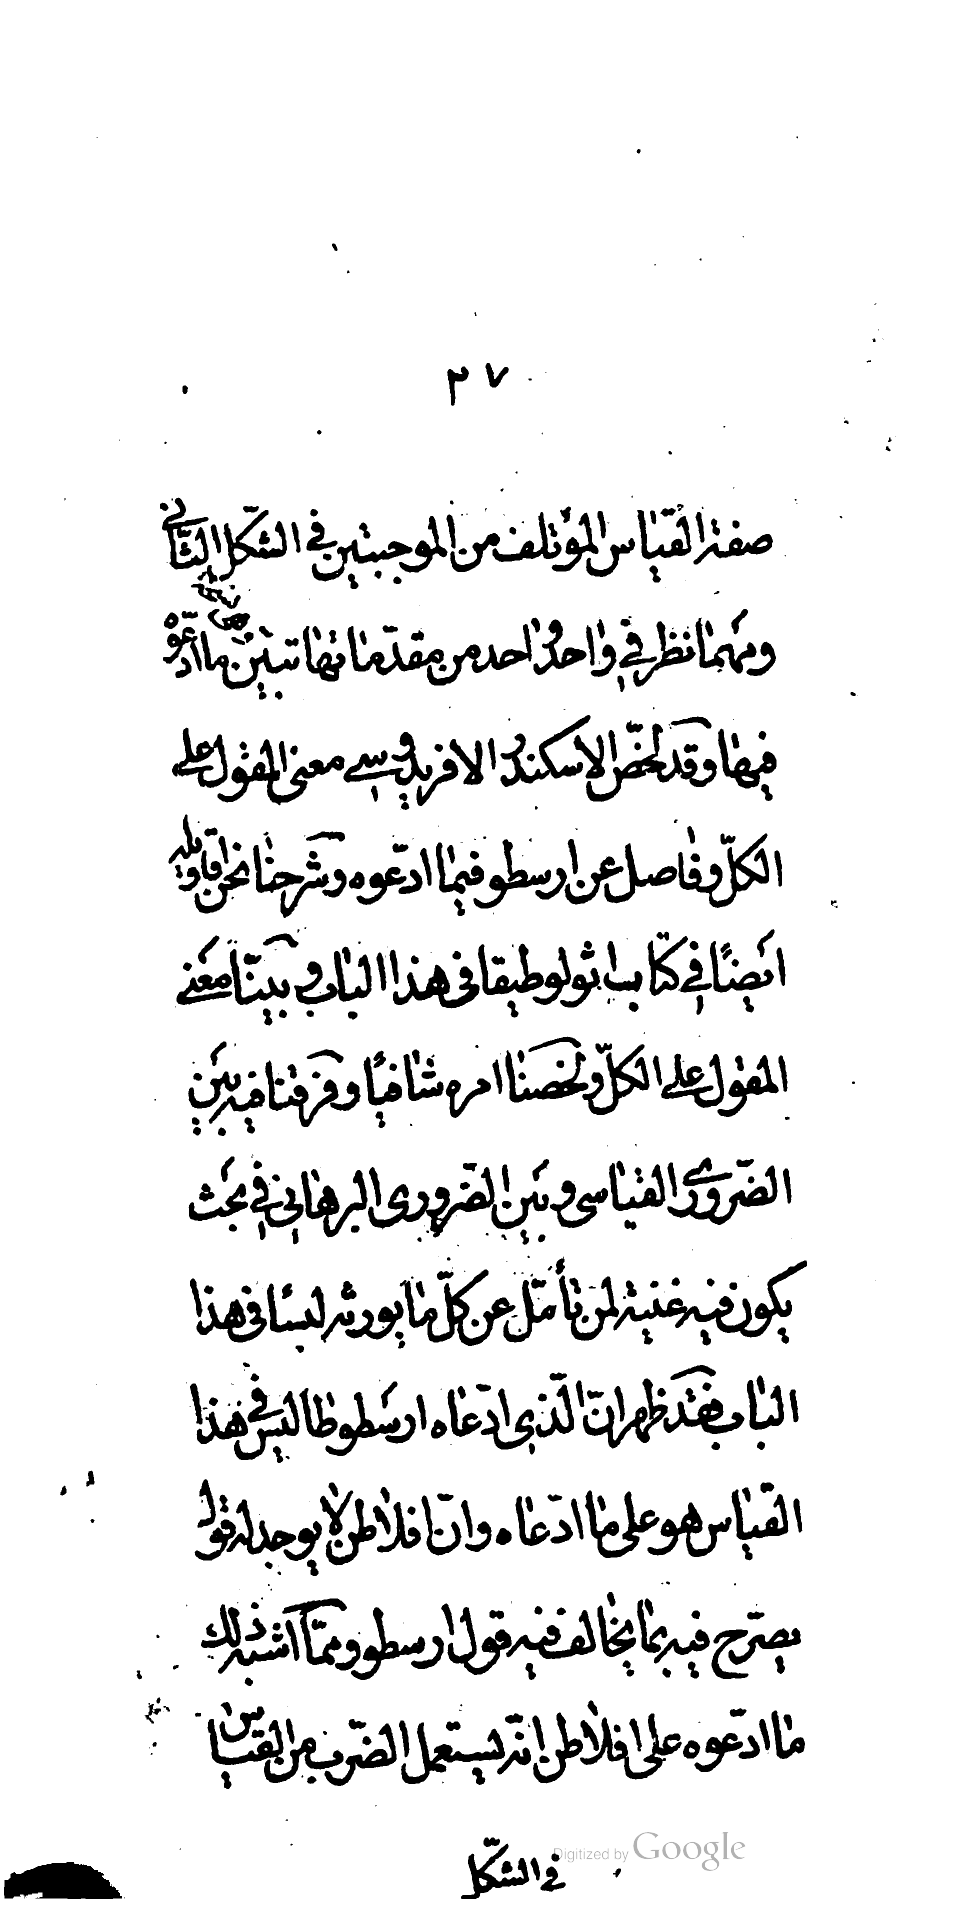 ٢٧
صفة القياس المؤتلف من الموجبتين في الشكل الثاني
ومهما نظر في واحد واحد من مقدماتها تبين ما ادعوه
فيها وقد لخص الاسكندر الافريدوسي معنى المقول على
الكلّ وفاصل عن ارسطو فيما ادّعوه وشرحنا نحن اقاويله
ايضًا في كتاب انولوطيقا في هذا الباب وبيّنّا معنى
المقول على الكلّ ولخصنا امره شافيًا وفرقنا فيه بين
الضّروري القياسى وبين الضّرورى البرهاني في بحث
يكون فيه غنية لمن تأمّل عن كلّ ما يورثه لبسًا فى هذا
الباب فقد ظهر انّ الّذي ادّعاه ارسطوطاليس في هذا
القياس هو على ما ادّعاه وانّ افلاطن لا يوجد له قول
يصرّح فيه بما يخالف فيه قول ارسطو وممّا اشبه ذلك
ما ادّعوه على افلاطن انّه يستعمل الضّرب من القياس
في الشكّل
Digitized by Google